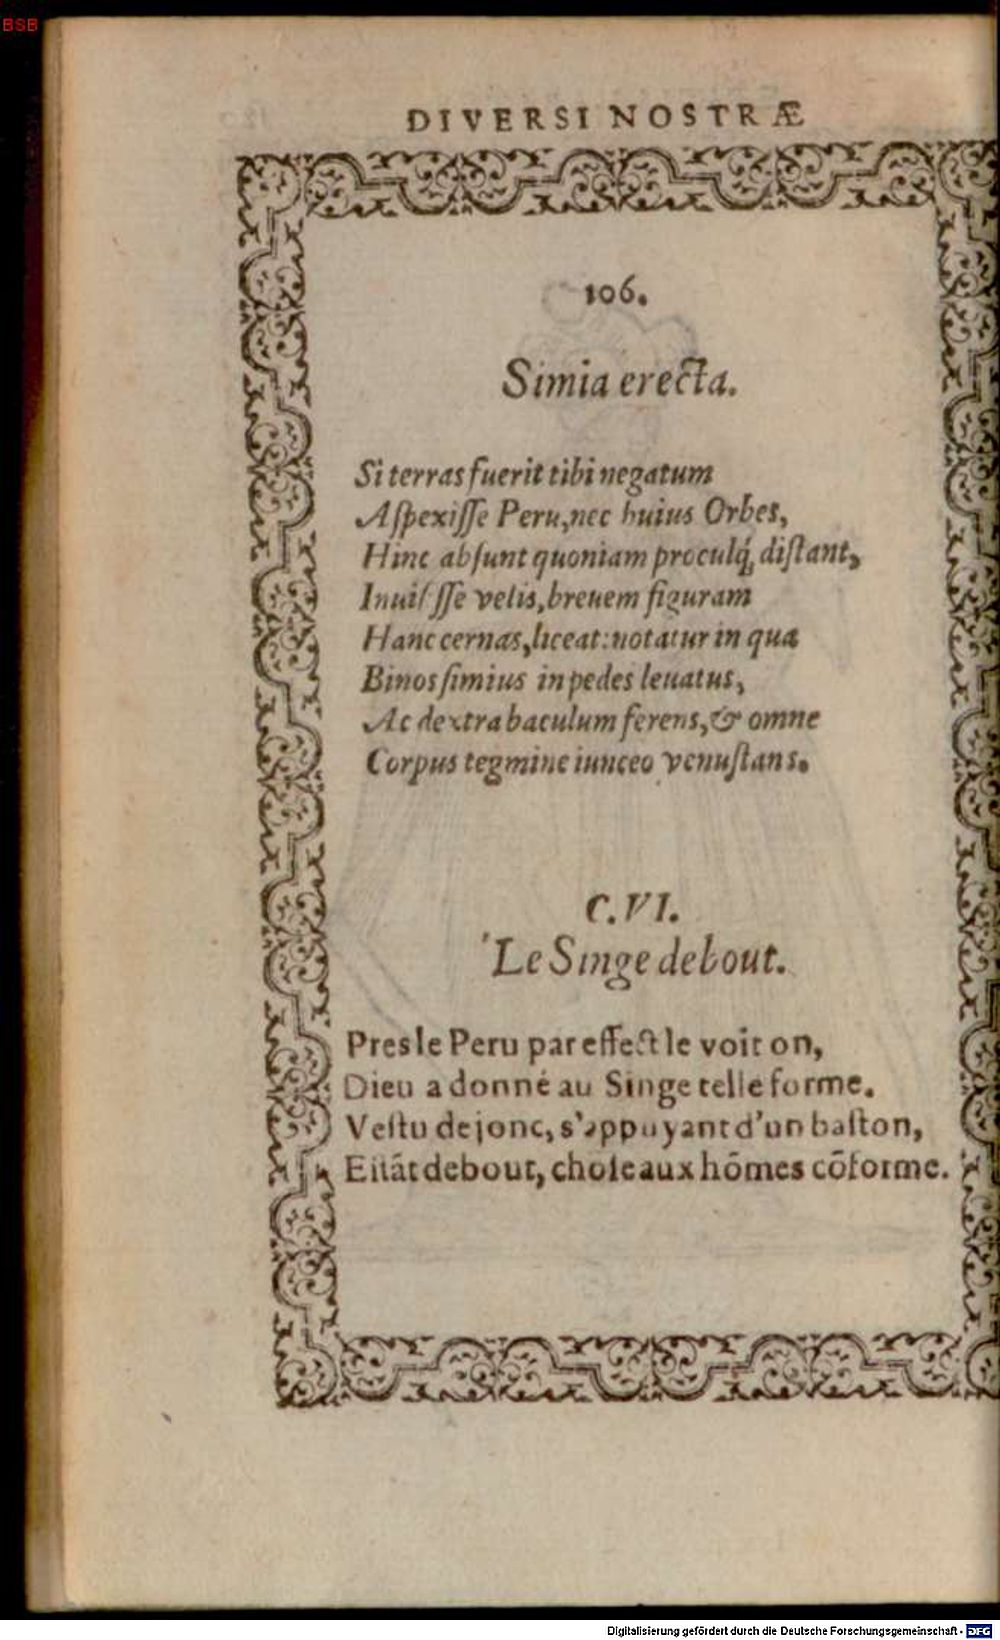 BSB
DIVERSI NOSTRÆ
106.
Simia erecta.
Si terras fuerit tibi negatum
Aſpexiſſe Peru, nec huius Orbes,
Hinc abſunt quoniam proculq́; diſtant,
Inuiſſſe velis, breuem figuram
Hanc cernas, liceat: notatur in qua
Binos ſimius in pedes leuatus,
Ac dextra baculum ferens, & omne
Corpus tegmine iunceo venuſtans.
C. VI.
Le Singe debout.
Pres le Peru par effect le voit on,
Dieu a donné au Singe telle forme.
Veſtu de jonc, s'appuyant d'un baſton,
Eſtāt debout, choſe aux hōmes cōforme.
Digitalisierung gefördert durch die Deutsche Forschungsgemeinschaft - DFG